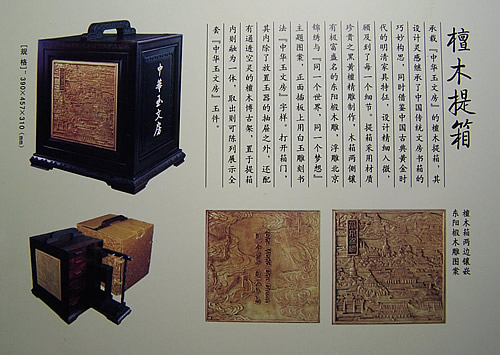 檀木提箱
承载『中华玉文房』的檀木提箱，其
设计灵感继承了中国传统文房书箱的
巧妙构思，同时借鉴中国古典黄金时
代的明清家具特征，设计精细入微，
顾及到了每一个细节。提箱采用材质
珍贵之黑黄檀精雕制作，木箱两侧镶
有极富盛名的东阳椴木雕，浮雕北京
锦绣与『同一个世界，同一个梦想』
主题图案，正面插板上用白玉雕刻书
法『中华玉文房』字样。打开箱门，
其内除了放置玉器的抽屉之外，还配
有通透空灵的檀木博古架，置于提箱
内则融为一体，取出则可陈列展示全
套『中华玉文房』玉件。
中華玉文房
[规格]：390×457×310 (mm)
檀木箱两边镶嵌
东阳椴木雕图案